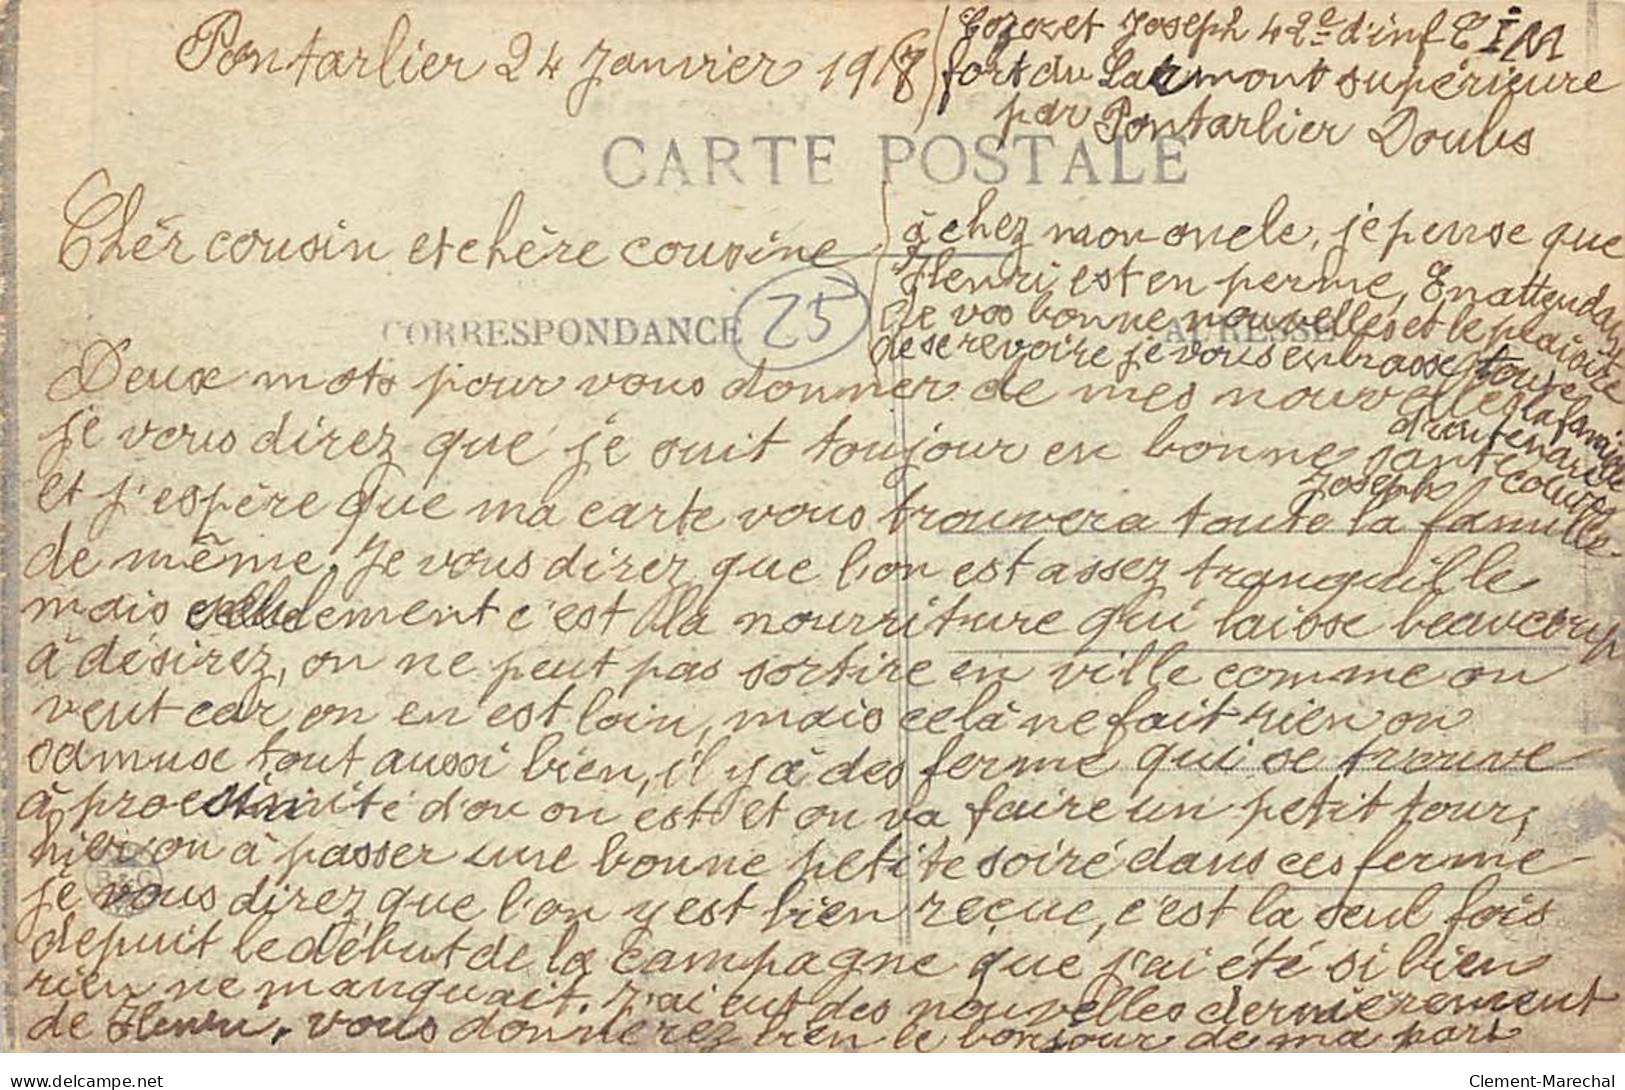 Pontarlier 24 Janvier 1918
Joseph 42e d'inf C I M
fort du Larmont supérieure
par Pontarlier Doubs
CARTE POSTALE
Chèr cousin et chère cousine
CORRESPONDANCE
25
ADRESSE
Deux mots pour vous donner de mes nouvelles
je vous direz que je suit toujour en bonne santé
et j'espère que ma carte vous trouvera toute la famille
de même. Je vous direz que l'on est assez tranquille
mais seulement c'est la nourriture qui laisse beaucoup
à désirez, on ne peut pas sortire en ville comme on
veut car on en est loin, mais celà ne fait rien on
samuse tout aussi bien, il y à des ferme qui se trouve
à proximité d'ou on est et on va faire un petit tour,
hier on à passer une bonne petite soiré dans ces ferme
je vous direz que l'on y est bien reçue, c'est la seul fois
depuit le début de la campagne que j'ai été si bien
rien ne manquait. J'ai eut des nouvelles dernièrement
de Henri, vous donnerez bien le bonjour de ma part
à chez mon oncle, je pense que
Henri est en perme, En attendant
de vos bonne nouvelles et le plaisire
de se revoire je vous enbrasse toute
la famille
Joseph
B & G
Clement-Marechal
delcampe.net